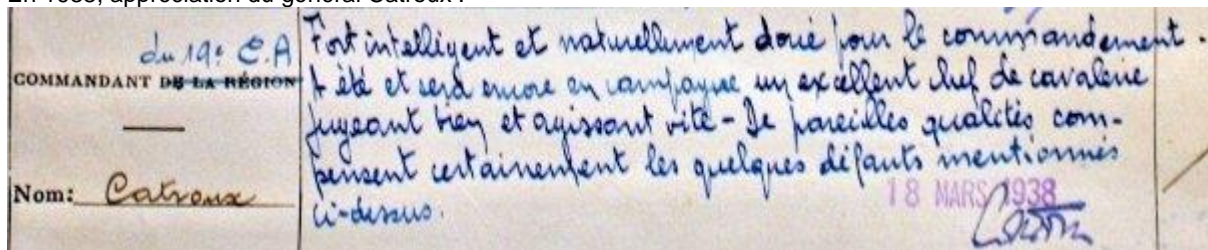 En 1938, appréciation du général Catroux :
du 19e C.A
COMMANDANT DE LA RÉGION
Nom: Catroux
Fort intelligent et naturellement doué pour le commandement.
A été et sera encore en campagne un excellent chef de cavalerie
jugeant bien et agissant vite - De pareilles qualités com-
pensent certainement les quelques défauts mentionnés
ci-dessus.
18 MARS 1938